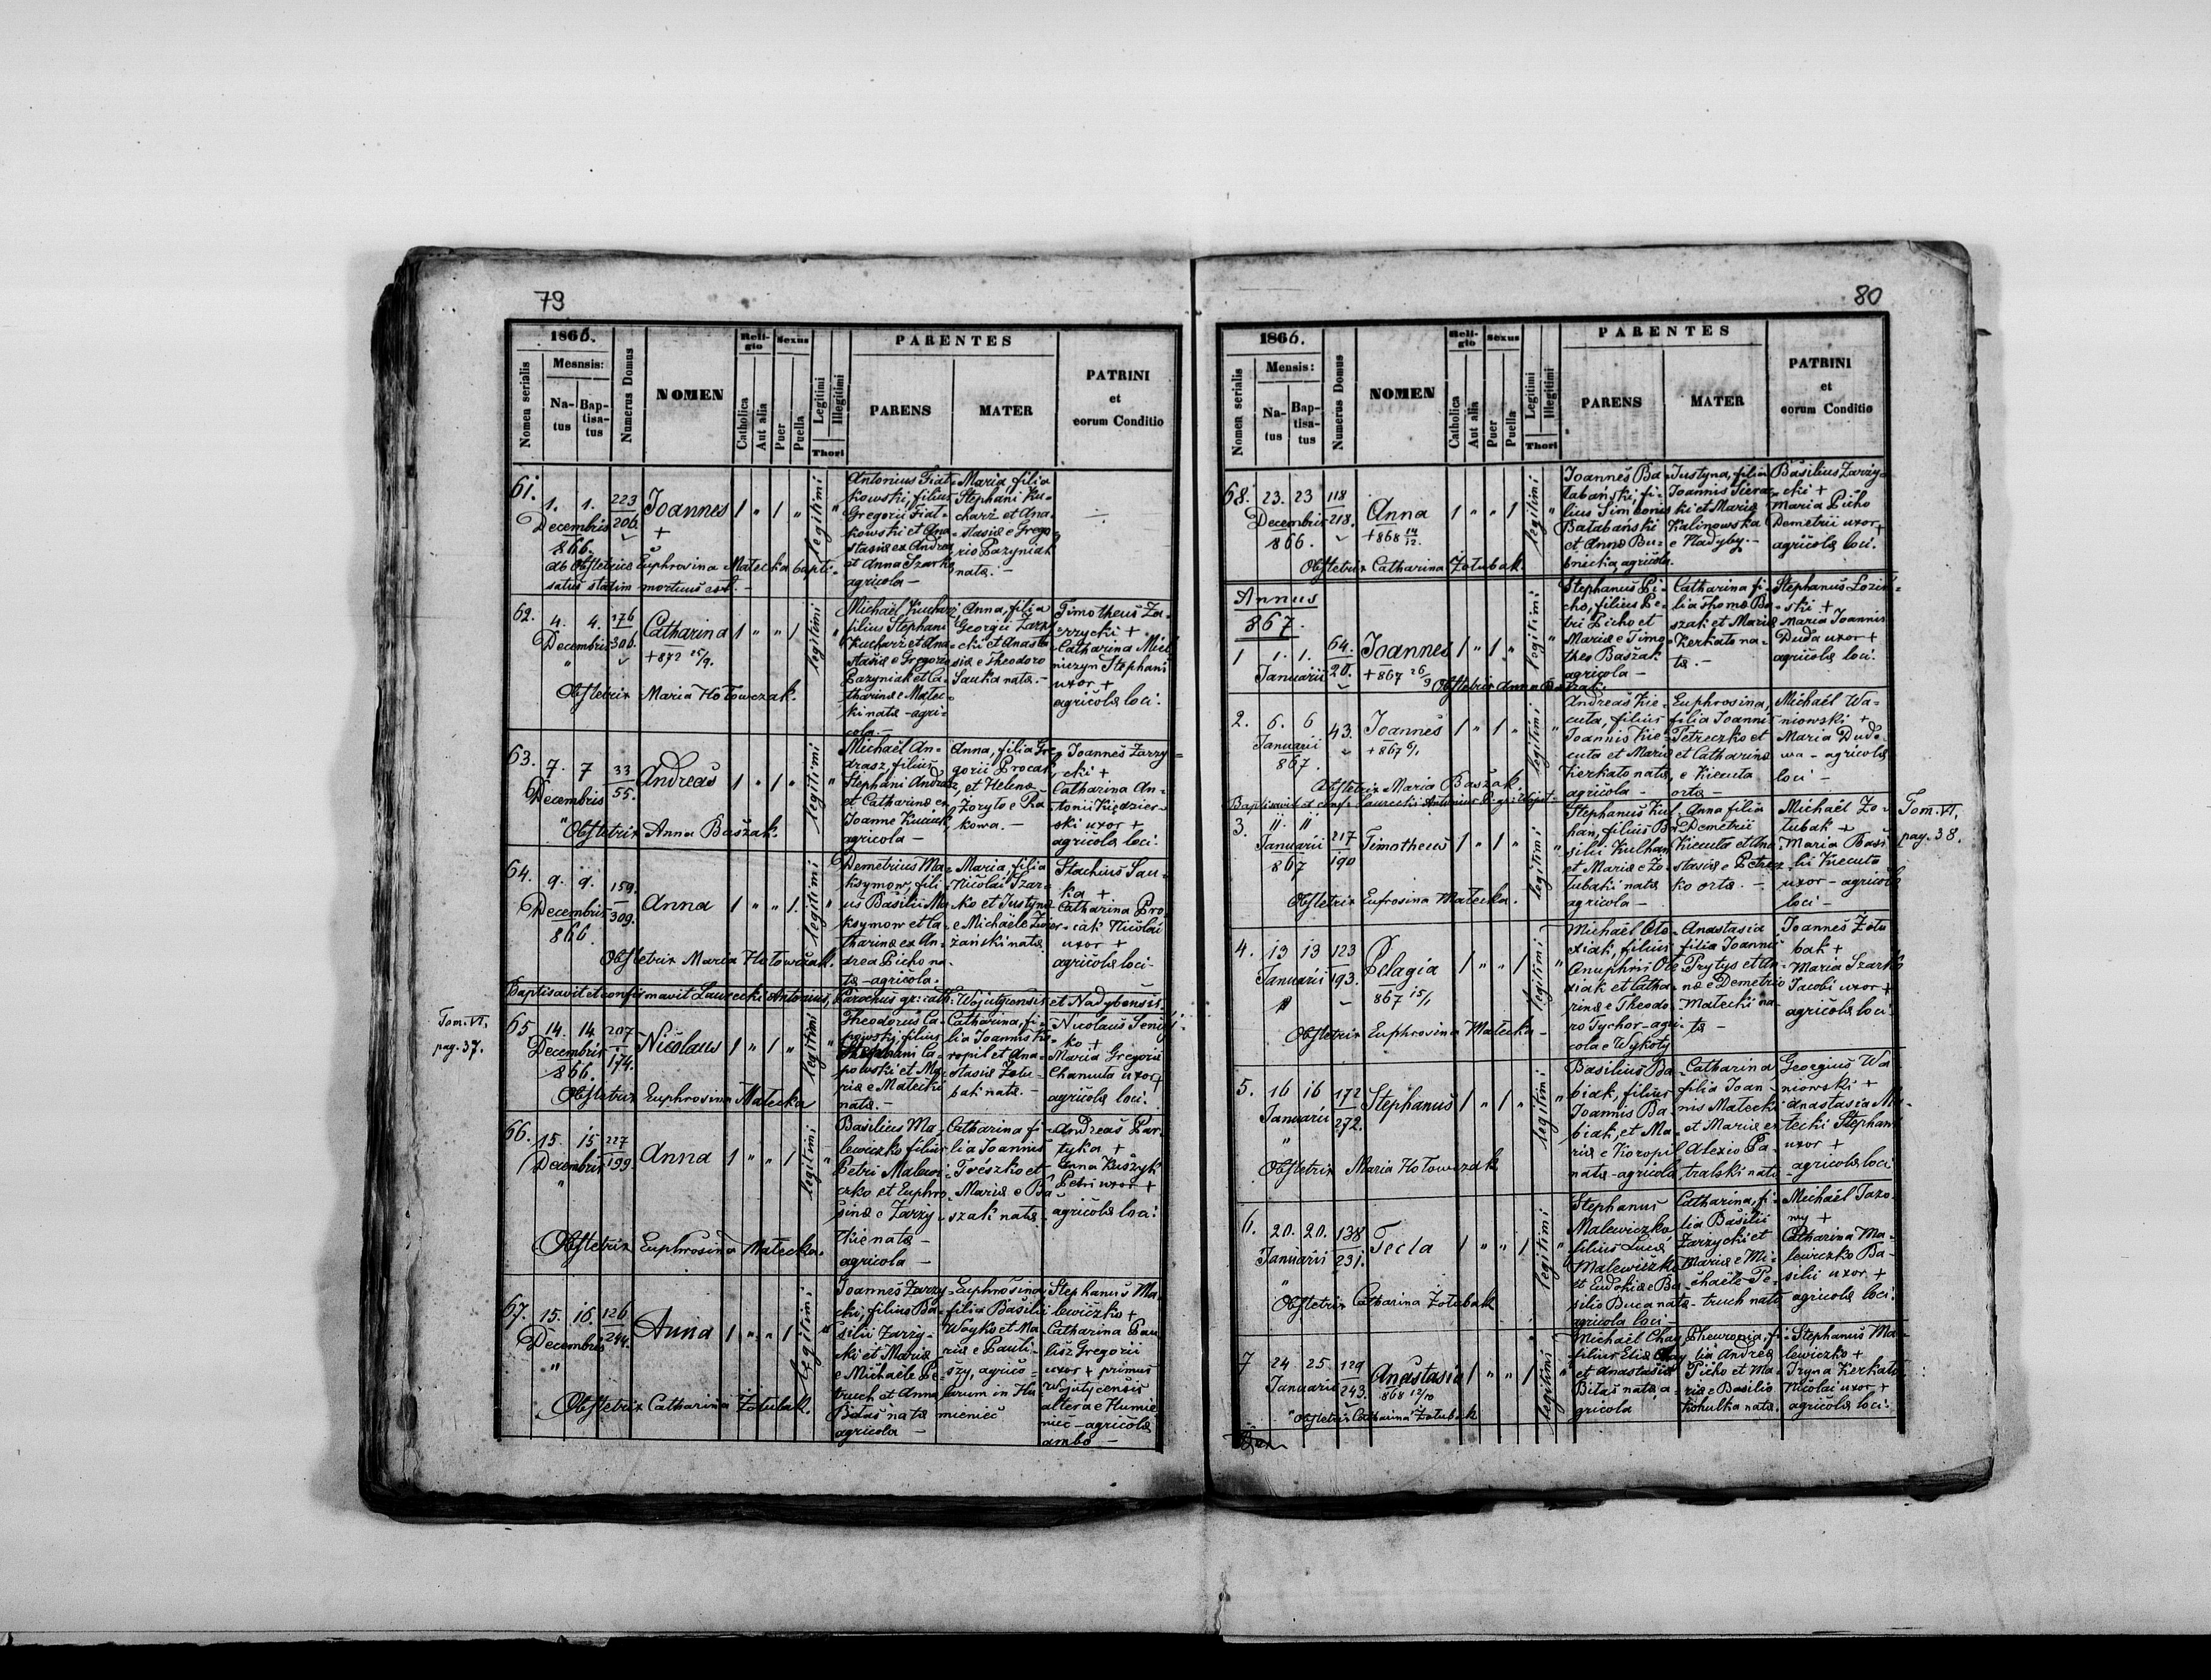 79
1866.
Mesnsis:
Nomen serialis
Na-
tus
Bap-
tisa-
tus
Numerus Domus
NOMEN
Reli-
gio
Catholica
Aut alia
Sexus
Puer
Puella
Legitimi
Illegitimi
Thori
PARENTES
PARENS
MATER
PATRINI
et
eorum Conditio
61.
1. 1. 223
Decembris 206.
866.
Joannes
+
1 " 1 "
legitimi
Antonius Fiat-
kowski, filius
Gregorii Fiat-
kowski et Ana-
stasiæ ex Andrea
et Anna Szarko
agricola —
Maria, filia
Stephani Ku-
charz et Ana-
stasiæ e Grego-
rio Bazyniak
nata. —
ab Obstetrice Euphrosina Małecka bapti-
satus statim mortuus est. —
62.
4. 4. 176
Decembris 306.
"
Catharina
+872 25/9.
1 " " 1
legitimi
Michaël Kucharz
filius Stephani
Kucharz et Ana-
stasiæ e Gregorio
Bazyniak et Ca-
tharinæ Małec-
ki nata - agri-
cola. —
Anna, filia
Georgii Zarzy-
cki et Anasta-
siæ e Theodoro
Sauka nata. —
Timotheus Za-
rzycki +
Catharina Miel-
niczyn Stephani
uxor +
agricolæ loci.
Obstetrix Maria Hołowczak.
63.
7. 7 33
Decembris 55.
"
Andreas
1 " 1 "
legitimi
Michaël An-
drasz, filius
Stephani Andrasz
et Catharinæ ex
Joanne Kuciak
agricola —
Anna, filia Gre-
gorii Procak
et Helenæ
Zozyło e Ra-
kowa. —
Joannes Zarzy-
cki +
Catharina An-
tonii Kiędzier-
ski uxor +
agricolæ loci.
Obstetrix Anna Baszak.
64.
9. 9. 159.
Decembris 309.
866.
Anna
1 " " 1.
legitimi
Demetrius Ma-
ksymow, fili-
us Basilii Ma-
ksymow et Ca-
tharinæ ex An-
drea Picho na-
ta - agricola.
Maria, filia
Nicolai Szar-
ko et Justynæ
e Michaële
nata
Stachius Sau-
ka +
Catharina Pro-
cak Nicolai
uxor +
agricolæ loci -
Obstetrix Maria Hołowczak.
Baptisavit et confirmavit Laurecki Antonius, Parochus gr: cath: Wojutycensis et Nadybensis.
Tom. VI.
pag. 37.
65
14. 14. 207
Decembris 174.
866.
Nicolaus
1 " 1 "
legitimi
Theodorus Ca-
powski, filius
Stephani Ca-
powski et Ma-
riæ e Małecki
nata. —
Catharina, fi-
lia Joannis Ko-
ropil et Ana-
stasiæ Zołu-
bak nata. —
Nicolaus
ko +
Maria Gregorii
Chamuta uxor +
agricolæ loci.
Obstetrix Euphrosina Małecka
66.
15. 15 227
Decembris 199.
"
Anna
1 " " 1
legitimi
Basilius Ma-
lewiczko filius
Petri Malewi-
czko et Euphro-
sinæ e Zarzy-
ckie nata —
agricola —
Catharina fi-
lia Joannis
Tereszko et
Mariæ e Ba-
szak nata
Andreas Par-
tyka +
Anna Kuszyk
Petri uxor +
agricolæ loci.
Obstetrix Euphrosina Małecka.
67.
15. 16. 126
Decembris 244.
"
Anna
1 " " 1
legitimi
Joannes Zarzy-
cki, filius Ba-
silii Zarzy-
cki et Mariæ
e Michaële Pe-
truch et Anna
Bitas nata
agricola —
Euphrosina
filia Basilii
Woyko et Ma-
riæ e Pauli-
szy, agrico-
larum in Hu-
mieniec
Stephanus Ma-
lewiczko +
Catharina Pau-
lisz Gregorii
uxor + primus
Wojutycensis
altera e Humie-
niec - agricolæ
ambo —
Obstetrix Catharina Zołubak.
80
1866.
Mensis:
Nomen serialis
Na-
tus
Bap-
tisa-
tus
Numerus Domus
NOMEN
Reli-
gio
Catholica
Aut alia
Sexus
Puer
Puella
Legitimi
Illegitimi
Thori
PARENTES
PARENS
MATER
PATRINI
et
eorum Conditio
68.
23. 23 118
Decembris 218.
866.
Anna
+868 14/12.
1 " " 1
legitimi
Joannes Ba-
łabański, fi-
lius Simeonis
Bałabański
et Annæ Bu-
bnicka, agricola.
Justyna, filia
Joannis Siera-
ski et Mariæ
Kalinowska
e Nadyby. —
Basilius Zarzy-
cki +
Maria Picho
Demetrii uxor +
agricolæ loci.
Obstetrix Catharina Zołubak.
Annus
867.
1
1. 1. 64.
Januarii 20.
Joannes
+867 26/9
1 " 1 "
legitimi
Stephanus Pi-
cho, filius Pe-
tri Picho et
Mariæ e Timo-
theo Baszak
agricola —
Catharina fi-
lia Thomæ Ba-
szak et Mariæ
Kerkato na-
ta. —
Stephanus Łozin-
ski +
Maria Joannis
Duda uxor +
agricolæ loci.
Obstetrix Anna Baszak.
2.
6. 6 43.
Januarii
867.
Joannes
+867 6/1
1 " 1 "
legitimi
Andreas Kie-
cuta, filius
Joannis Kie-
cuta et Mariæ
Kerkato nata,
agricola —
Euphrosina,
filia Joannis
Petreczko et
et Catharinæ
e Kiecuta
orta —
Michaël Wa-
niowski +
Maria Dudo-
wa - agricolæ
loci —
Obstetrix Maria Baszak.
Baptisavit et conf: Laurecki Antonius
3.
11. 11
Januarii 217
867 190
Timotheus
1 " 1 "
legitimi
Stephanus Kul-
han, filius Ba-
silii Kulhan
et Mariæ e Zo-
łubaki nata
agricola —
Anna filia
Demetrii
Kiecuta et Ana-
stasiæ e Petrecz-
ko orta. —
Michaël Zo-
łubak +
Maria Basi-
lii Kiecuta
uxor - agricolæ
loci -
Tom. VI.
pag. 38.
Obstetrix Eufrosina Małecka.
4.
13 13 123
Januarii 193.
Pelagia
867 15/1
1 " " 1
legitimi
Michaël Ole-
xiak, filius
Onuphrii Ole-
xiak et Catha-
rinæ e Theodo-
ro Tychor - agri-
cola e Wykoty
Anastasia
filia Joannis
Prytys et An-
næ e Demetrio
Małecki na-
ta —
Joannes Żołu
bak +
Maria Szarko
Jacobi uxor +
agricolæ loci
Obstetrix Euphrosina Małecka -
5.
16 16 172
Januarii 272.
"
Stephanus
1 " 1 "
legitimi
Basilius Ba-
biak, filius
Joannis Ba-
biak, et Ma-
riæ e Koropil
nata - agricola
Catharina
filia Joan-
nis Małecki
et Mariæ ex
Alexio Pa-
tralski nata
Georgius Wa
niowski +
Anastasia Ma-
łecki Stephani
uxor +
agricolæ loci
Obstetrix Maria Hołowczak
6.
20. 20. 138
Januarii 231.
"
Tecla
1 " " 1
legitimi
Stephanus
Malewiczko,
filius Lucæ
Malewiczko
et Eudokiæ e Ba-
silio Buca nata
agricola loci —
Catharina, fi-
lia Basilii
Zarzycki et
Mariæ e Mi-
chaële Pe-
truch nata
Michaël Jazo-
wy +
Catharina Ma-
lewiczko Ba-
silii uxor +
agricolæ loci.
Obstetrix Catharina Zołubak
7
24 25. 129
Januarii 243.
"
Anastasia
868 12/10
1 " " 1
legitimi
Michaël Chay
filius Eliæ Chay
et Anastasiæ
Bitas nata, a-
gricola
Pheuronia, fi-
lia Andreæ
Picho et Ma-
riæ e Basilio
Kohulka nata.
Stephanus Ma-
lewiczko +
Iryna Kerkato
Nicolai uxor +
agricolæ loci.
Obstetrix Catharina Zołubak